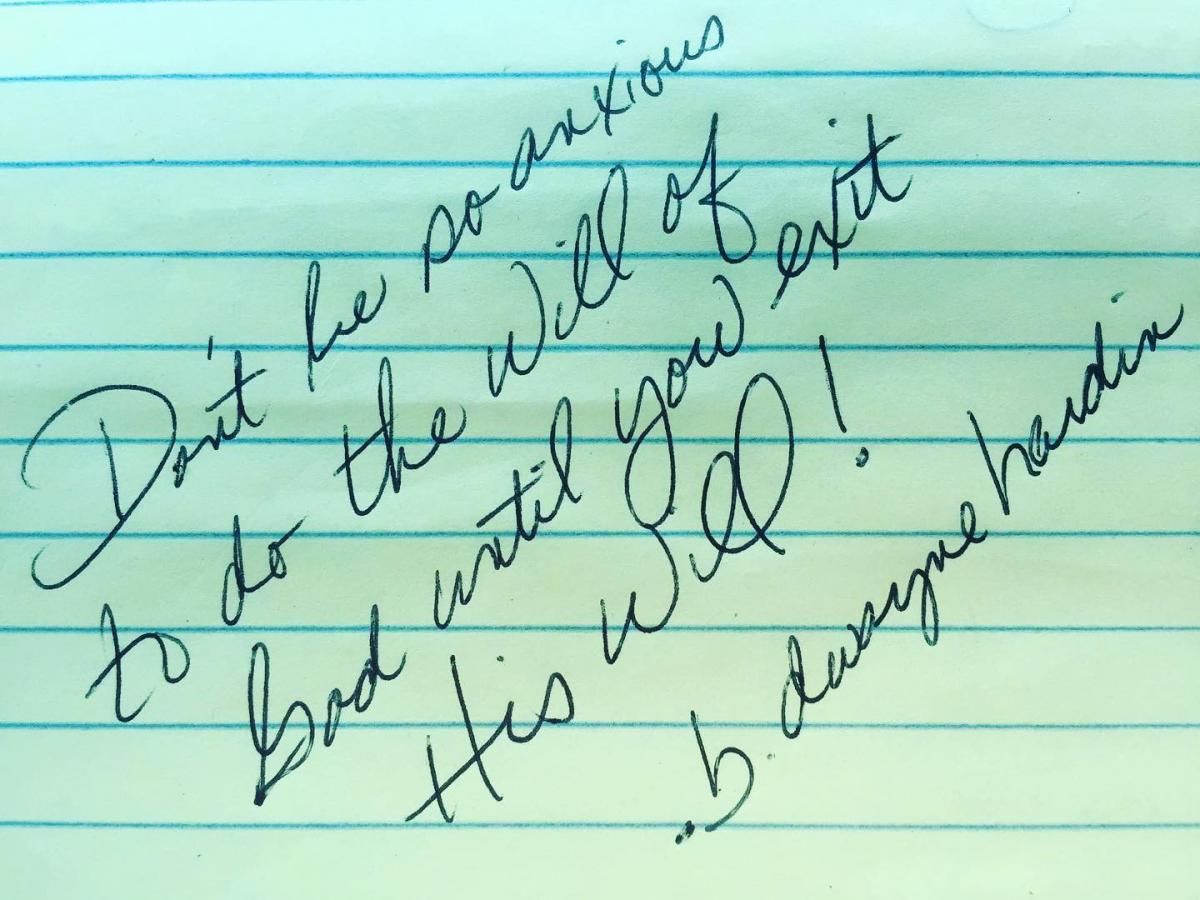 Don't be so anxious
to do the Will of
God until you exit
His Will!
..b. dwayne hardin